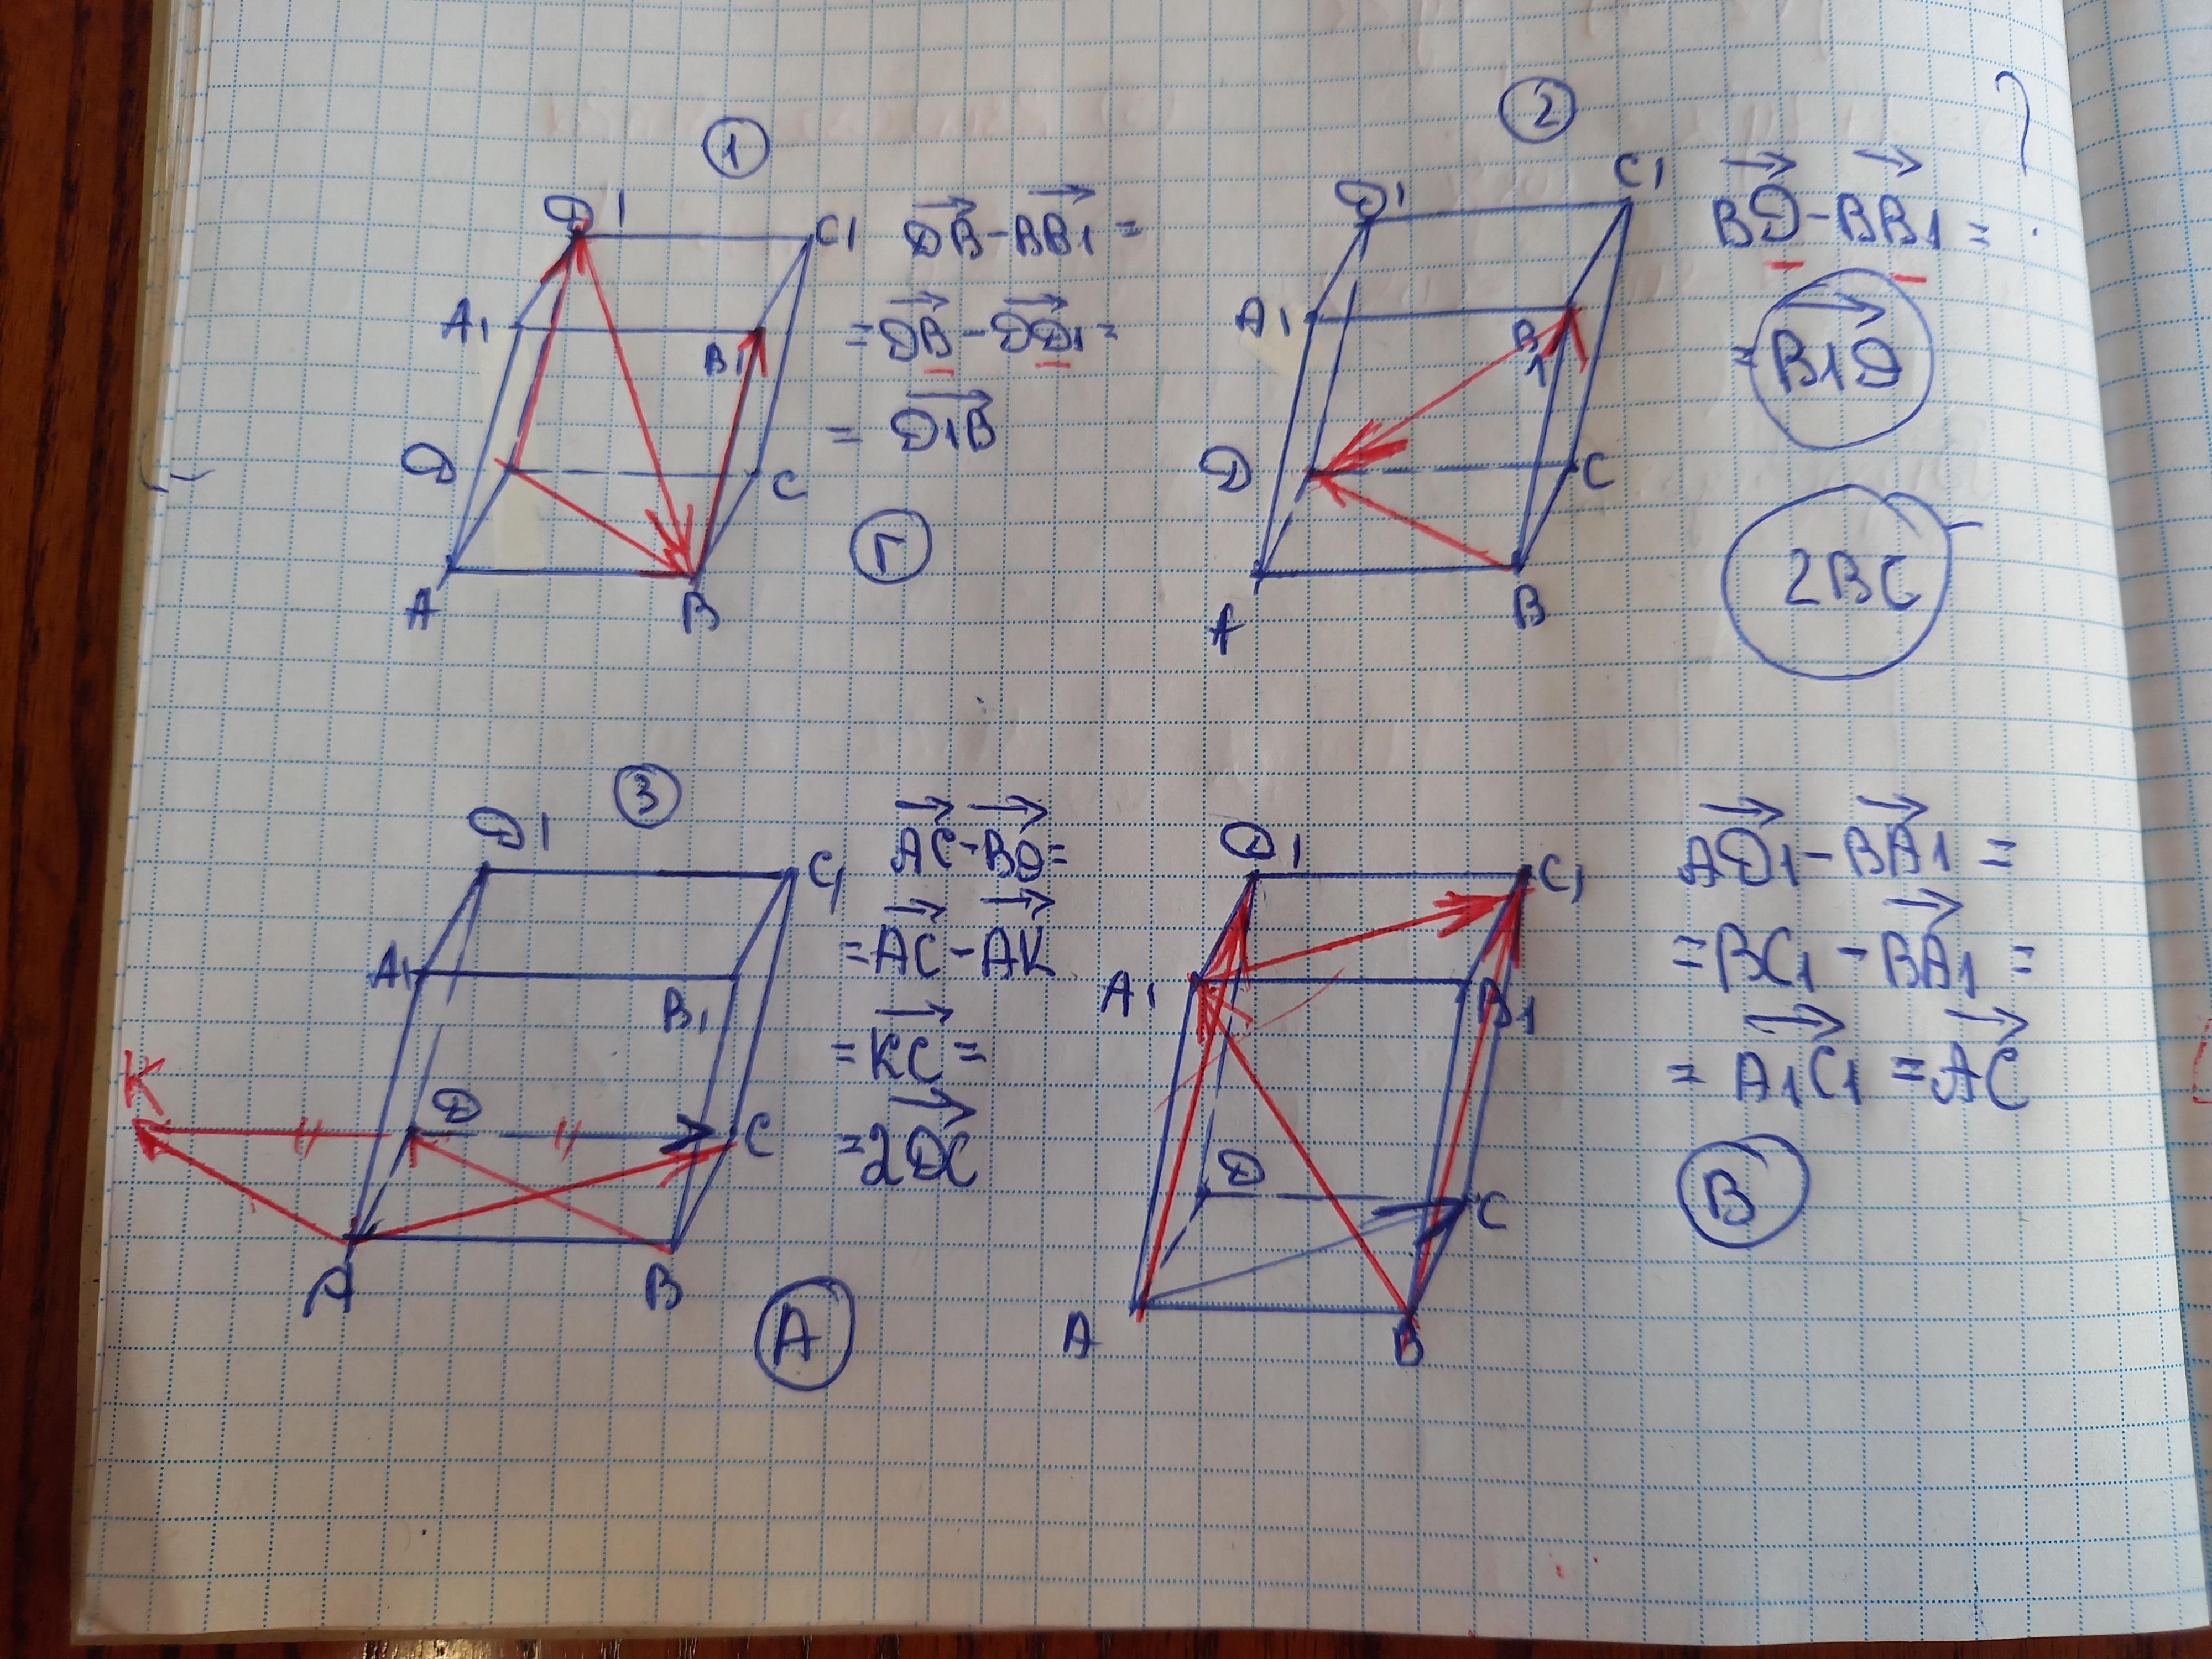 1
D1
C1
A1
B1
D
C
A
B
DB - BB1 =
= DB - DD1 =
= D1B
Г
2
?
D1
C1
A1
B1
D
C
A
B
BD - BB1 =
= B1D
2BC
3
D1
C1
A1
B1
K
D
C
A
B
AC - BD =
= AC - AK
= KC =
= 2DC
A
D1
C1
A1
B1
D
C
A
B
AD1 - BA1 =
= BC1 - BA1 =
= A1C1 = AC
B